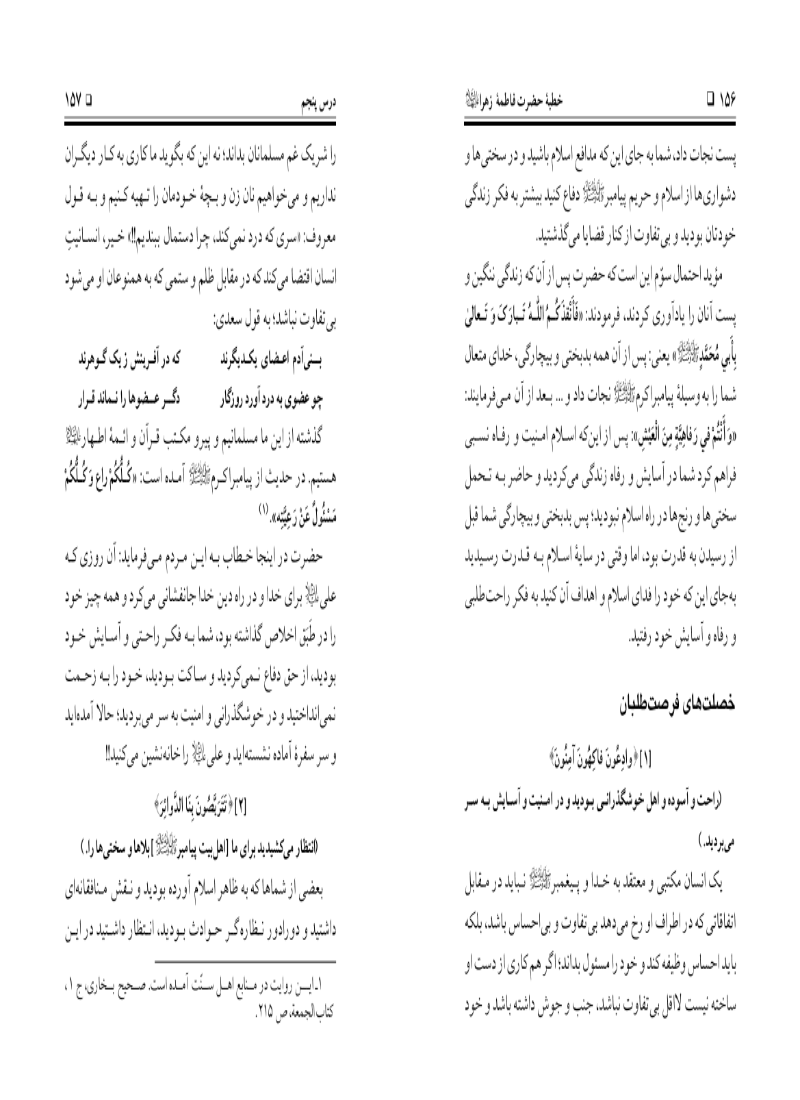 ۱۵۶ ❑ خطبهٔ حضرت فاطمهٔ زهرا
پست نجات داد، شما به جای این که مدافع اسلام باشید و در سختی‌ها و
دشواری‌ها از اسلام و حریم پیامبرﷺ دفاع کنید بیشتر به فکر زندگی
خودتان بودید و بی‌تفاوت از کنار قضایا می‌گذشتید.
مؤید احتمال سوّم این است که حضرت پس از آن که زندگی ننگین و
پست آنان را یادآوری کردند، فرمودند: «فَأَنْقَذَكُـمُ اللّٰـهُ تَـبارَكَ وَ تَـعالىٰ
بِأَبي مُحَمَّدٍﷺ» یعنی: پس از آن همه بدبختی و بیچارگی، خدای متعال
شما را به وسیلهٔ پیامبر اکرمﷺ نجات داد و ... بـعد از آن مـی‌فرمایند:
«وَ أَنْتُمْ في رَفاهِيَّةٍ مِنَ الْعَيْشِ»: پس از این‌که اسـلام امـنیت و رفـاه نسـبی
فراهم کرد شما در آسایش و رفاه زندگی می‌کردید و حاضر بـه تـحمل
سختی‌ها و رنج‌ها در راه اسلام نبودید؛ پس بدبختی و بیچارگی شما قبل
از رسیدن به قدرت بود، اما وقتی در سایهٔ اسـلام بـه قـدرت رسـیدید
به‌جای این که خود را فدای اسلام و اهداف آن کنید به فکر راحت‌طلبی
و رفاه و آسایش خود رفتید.
خصلت‌های فرصت‌طلبان
[۱] ﴿وادِعُونَ فاكِهُونَ آمِنُونَ﴾
(راحت و آسوده و اهل خوشگذرانـی بـودید و در امـنیت و آسـایش بـه سـر
می‌بردید.)
یک انسان مکتبی و معتقد به خـدا و پـیغمبرﷺ نـباید در مـقابل
اتفاقاتی که در اطراف او رخ می‌دهد بی تفاوت و بی‌احساس باشد، بلکه
باید احساس وظیفه کند و خود را مسئول بداند؛ اگر هم کاری از دست او
ساخته نیست لااقل بی تفاوت نباشد، جنب و جوش داشته باشد و خود
درس پنجم ❑ ۱۵۷
را شریک غم مسلمانان بداند؛ نه این که بگوید ما کاری به کـار دیگـران
نداریم و می‌خواهیم نان زن و بـچهٔ خـودمان را تـهیه کـنیم و بـه قـول
معروف: «سری که درد نمی‌کند، چرا دستمال ببندیم!!» خـیر، انسـانیتِ
انسان اقتضا می‌کند که در مقابل ظلم و ستمی که به همنوعان او می‌شود
بی‌تفاوت نباشد؛ به قول سعدی:
بـنی‌آدم اعـضای یکـدیگرند که در آفـرینش ز یک گـوهرند
چو عضوی به درد آورد روزگار دگـر عـضوها را نـماند قـرار
گذشته از این ما مسلمانیم و پیرو مکتب قـرآن و ائـمهٔ اطـهار
هستیم. در حدیث از پیامبر اکـرمﷺ آمـده است: «كُـلُّكُمْ راعٍ وَ كُـلُّكُمْ
مَسْئُولٌ عَنْ رَعِيَّتِهِ».(۱)
حضرت در اینجا خـطاب بـه ایـن مـردم مـی‌فرماید: آن روزی کـه
علی برای خدا و در راه دین خدا جانفشانی می‌کرد و همه چیز خود
را در طَبَق اخلاص گذاشته بود، شما بـه فکـر راحـتی و آسـایش خـود
بودید، از حق دفاع نـمی‌کردید و سـاکت بـودید، خـود را بـه زحـمت
نمی‌انداختید و در خوشگذرانی و امنیت به سر می‌بردید؛ حالا آمده‌اید
و سر سفرهٔ آماده نشسته‌اید و علی را خانه‌نشین می‌کنید!!
[۲] ﴿تَتَرَبَّصُونَ بِنَا الدَّوائِرَ﴾
(انتظار می‌کشیدید برای ما [اهل‌بیت پیامبرﷺ] بلاها و سختی‌ها را.)
بعضی از شماها که به ظاهر اسلام آورده بودید و نـقش مـنافقانه‌ای
داشتید و دورادور نـظاره‌گـر حـوادث بـودید، انـتظار داشـتید در ایـن
۱ـ ایـن روایت در منابع اهـل سـنّت آمـده است. صـحیح بـخاری، ج ۱،
کتاب‌الجمعة، ص ۲۱۵.